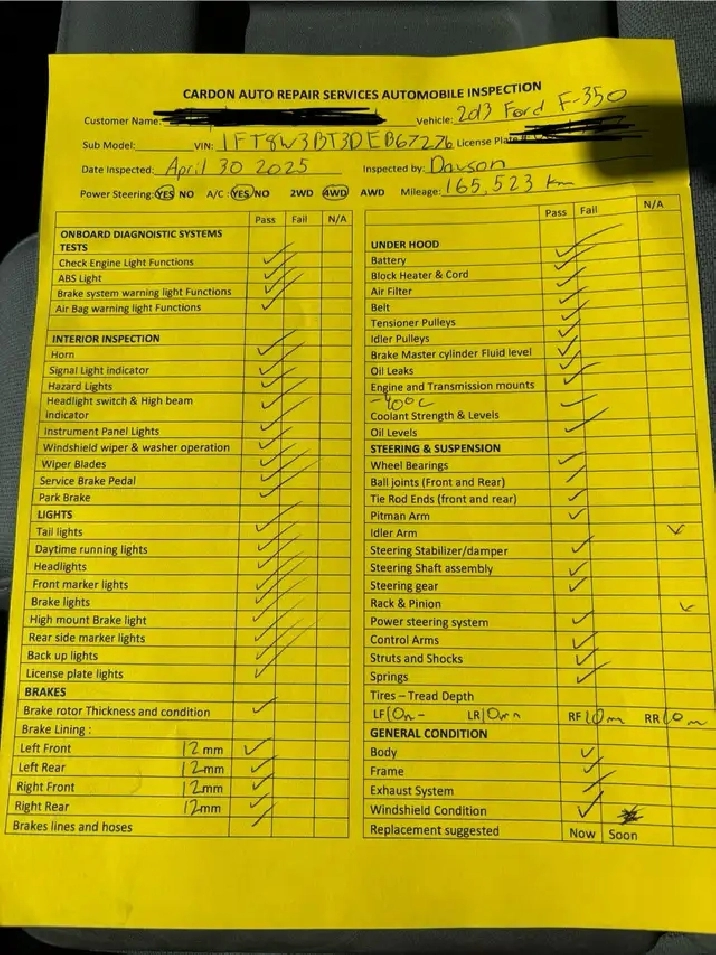 CARDON AUTO REPAIR SERVICES AUTOMOBILE INSPECTION
Customer Name: Vehicle: 2013 Ford F-350
Sub Model: VIN: 1FT8W3BT3DEB67276 License Plate
Date Inspected: April 30 2025 Inspected by: Dawson
Power Steering: YES NO A/C: YES/NO 2WD 4WD AWD Mileage: 165,523 km
Pass Fail N/A
ONBOARD DIAGNOSTIC SYSTEMS
TESTS
Check Engine Light Functions
ABS Light
Brake system warning light Functions
Air Bag warning light Functions
INTERIOR INSPECTION
Horn
Signal Light indicator
Hazard Lights
Headlight switch & High beam
Indicator
Instrument Panel Lights
Windshield wiper & washer operation
Wiper Blades
Service Brake Pedal
Park Brake
LIGHTS
Tail lights
Daytime running lights
Headlights
Front marker lights
Brake lights
High mount Brake light
Rear side marker lights
Back up lights
License plate lights
BRAKES
Brake rotor Thickness and condition
Brake Lining :
Left Front 12 mm
Left Rear 12mm
Right Front 12mm
Right Rear 12mm
Brakes lines and hoses
Pass Fail N/A
UNDER HOOD
Battery
Block Heater & Cord
Air Filter
Belt
Tensioner Pulleys
Idler Pulleys
Brake Master cylinder Fluid level
Oil Leaks
Engine and Transmission mounts
-40°C
Coolant Strength & Levels
Oil Levels
STEERING & SUSPENSION
Wheel Bearings
Ball joints (Front and Rear)
Tie Rod Ends (front and rear)
Pitman Arm
Idler Arm
Steering Stabilizer/damper
Steering Shaft assembly
Steering gear
Rack & Pinion
Power steering system
Control Arms
Struts and Shocks
Springs
Tires – Tread Depth
LF 10m LR 10mm RF 10m RR 10m
GENERAL CONDITION
Body
Frame
Exhaust System
Windshield Condition
Replacement suggested Now Soon